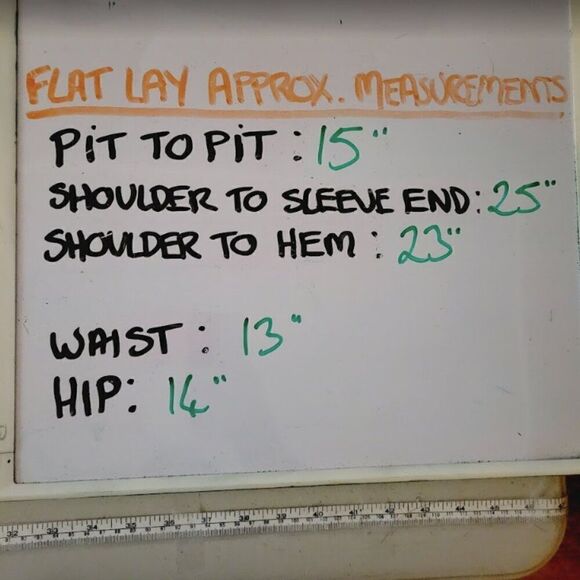 FLAT LAY APPROX. MEASUREMENTS
PIT TO PIT : 15"
SHOULDER TO SLEEVE END: 25"
SHOULDER TO HEM : 23"
WAIST : 13"
HIP: 14"